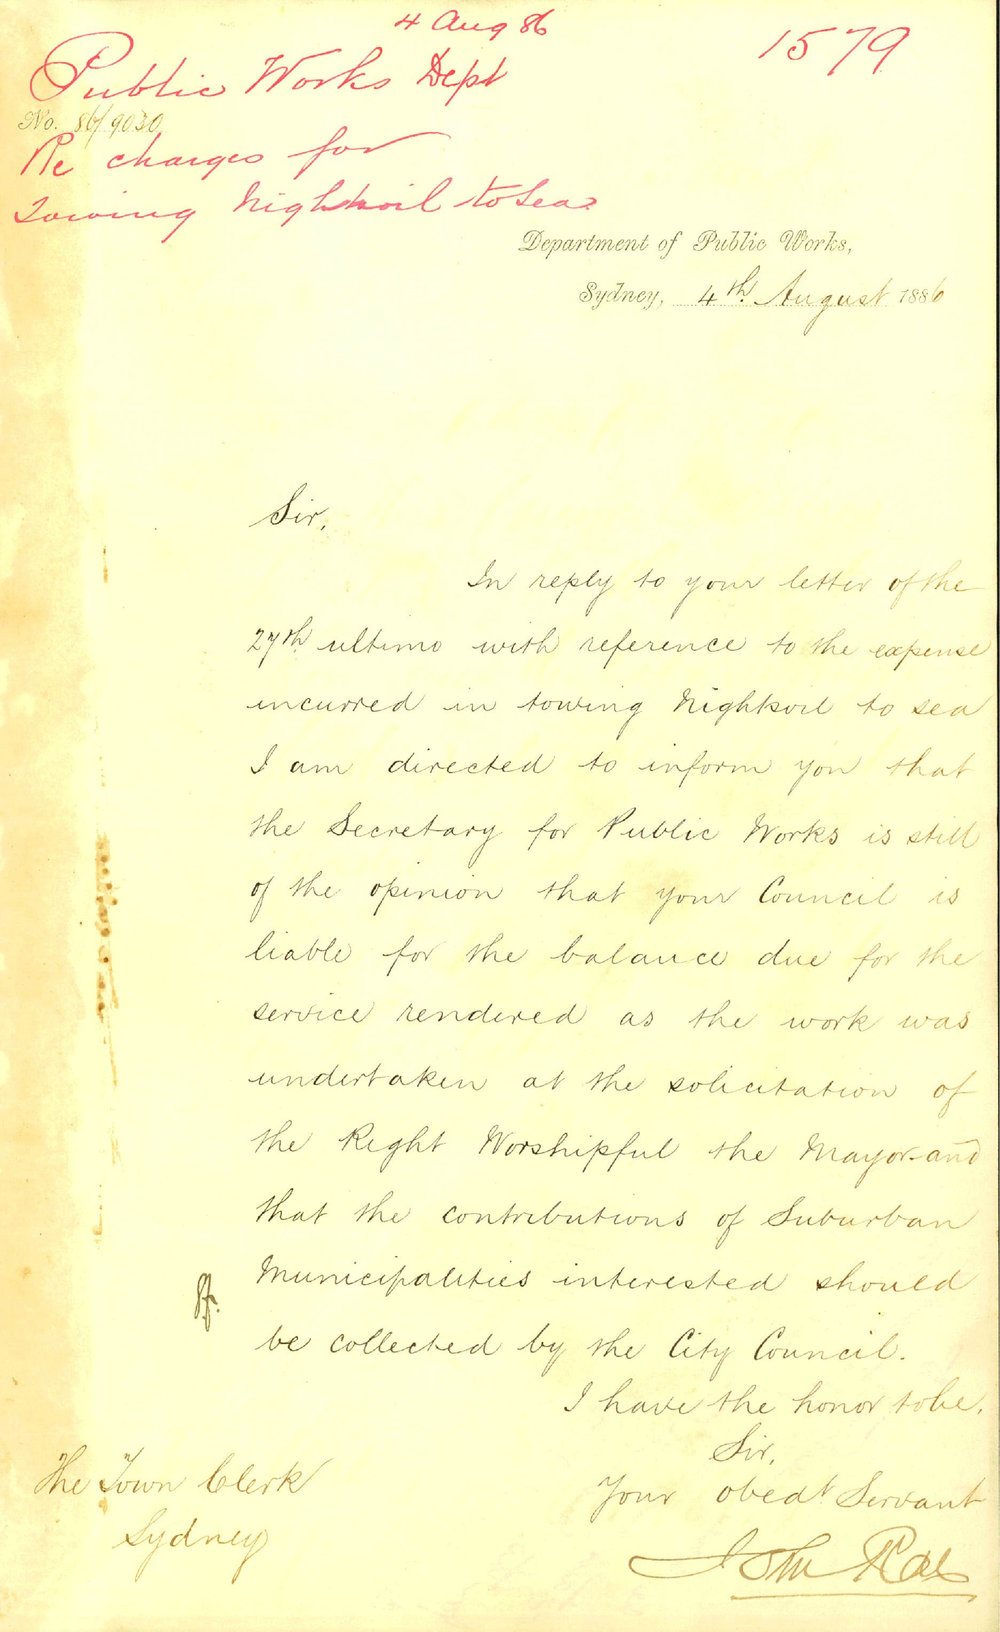 4 Aug 86
1579
Public Works Dept
No. 86/9030
Re charges for
towing Nightsoil to Sea
Department of Public Works,
Sydney, 4th August 1886
Sir,
In reply to your letter of the
27th ultimo with reference to the expense
incurred in towing Nightsoil to sea
I am directed to inform you that
the Secretary for Public Works is still
of the opinion that your Council is
liable for the balance due for the
service rendered as the work was
undertaken at the solicitation of
the Right Worshipful the Mayor and
that the contributions of Suburban
Municipalities interested should
be collected by the City Council.
I have the honor to be,
Sir,
Your obedt Servant
John Rae
The Town Clerk
Sydney